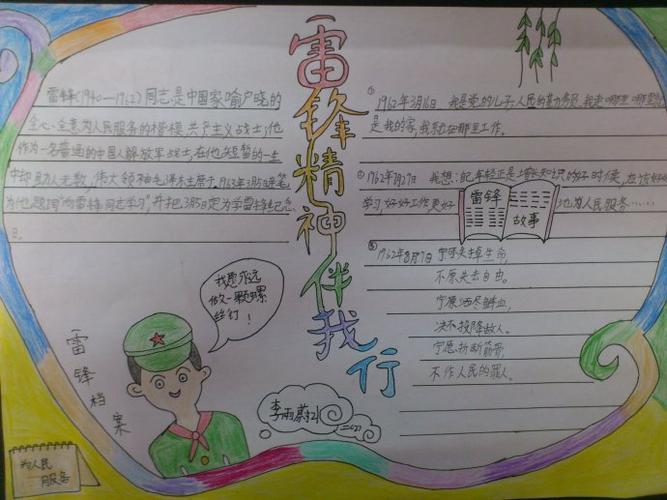 雷锋精神伴我行
雷锋(1940—1962)同志是中国家喻户晓的
全心全意为人民服务的楷模,共产主义战士;他
作为一名普通的中国人解放军战士,在他短暂的一生
中却助人无数,伟大领袖毛泽东主席于1963年3月5日
为他题词"向雷锋同志学习",并把3月5日定为学雷锋纪念
日。
① 1962年3月16日 我是党的儿子,人民的勤务员,我走哪里,哪里
是我的家,我就在那里工作。
我想:
年轻正是 知识的好时候,
学习,好好工作更好 地为人民服务……
雷锋
故事
③ 1962年8月7日 宁愿失掉生命,
不原失去自由。
宁原洒尽鲜血,
决不投降敌人。
宁愿折断筋骨,
不作人民的罪人。
我愿永远
做一颗螺
丝钉!
雷锋档案
李雨蔚
为人民
服务